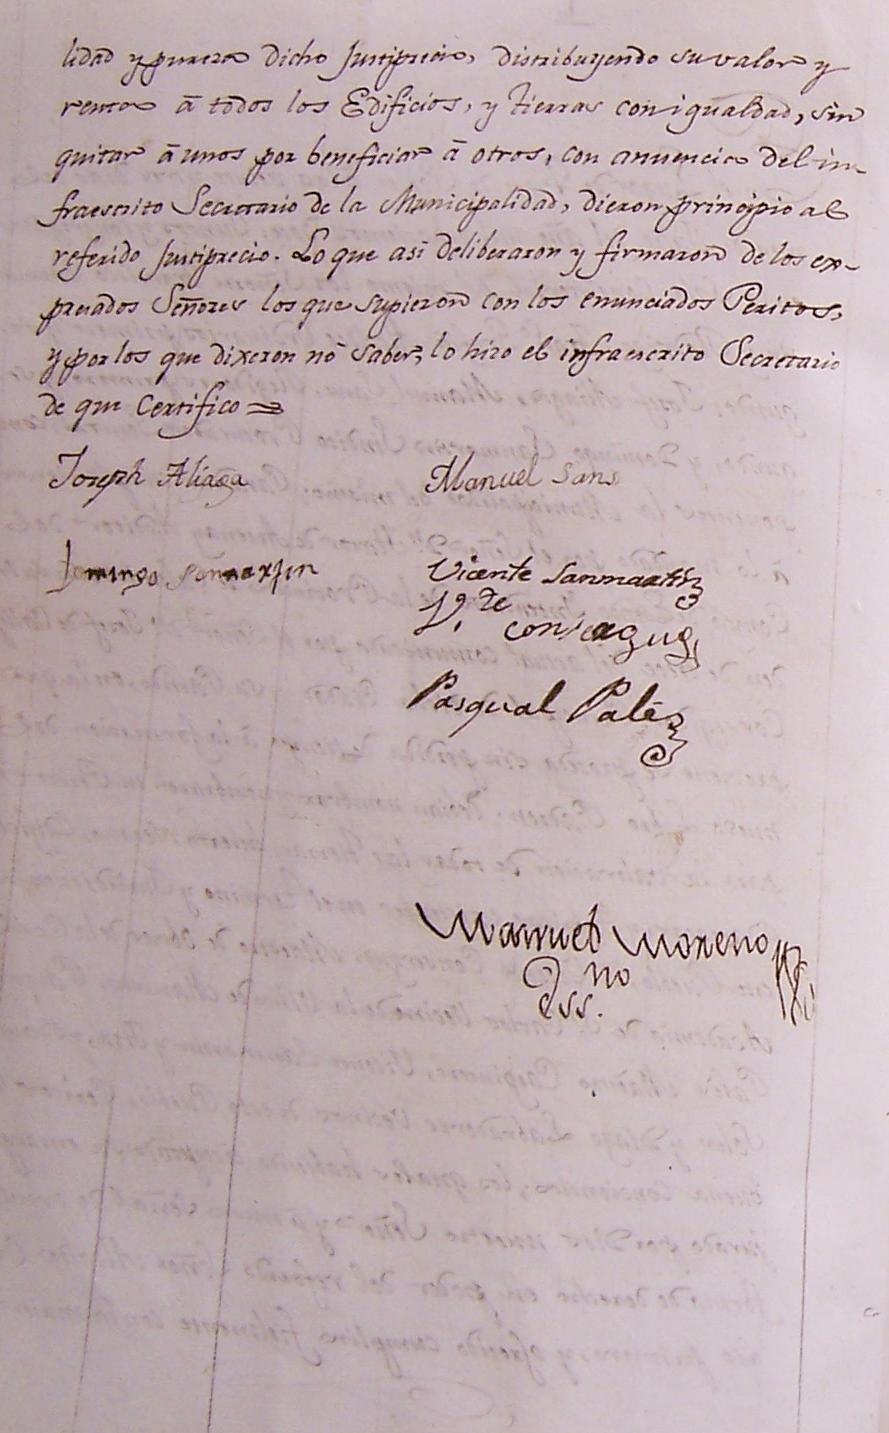 lidad y pureza dicho Justiprecio, distribuyendo su valor y
renta â todos los Edificios, y tierras con igualdad, sin
quitar â unos por beneficiar â otros, con anuencia del in-
fraescrito Secretario de la Municipalidad, dieron principio al
referido Justiprecio. Lo que asi deliberaron y firmaron de los ex-
presados Señores los que supieron con los enunciados Peritos,
y por los que dixeron nò saber, lo hizo el infraescrito Secretario
de que Certifico =
Joseph Aliaga
Manuel Sans
Domingo Sanmartin
Vicente Sanmartin
V.te
Pasqual Palés
Manuel Moreno
Ess.no